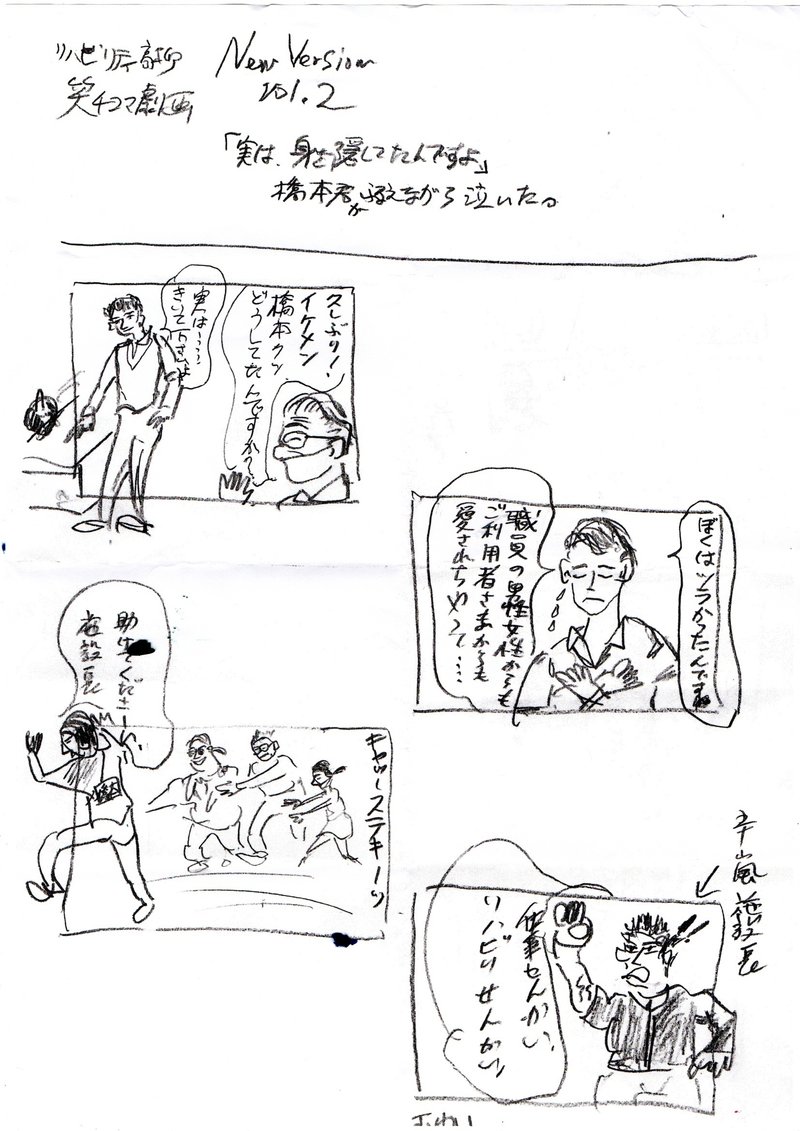 リハビリティ高柳
笑4コマ劇画
New Version
vol.2
「実は、身を隠してたんですよ」
橋本君が震えながら泣いた。
久しぶり!
イケメン
橋本クン
どうしてたんですか?
実は……
きいて下さいよ
ぼくはツラかったんですね
職員の男性女性からも
ご利用者さまからも
愛されちゃって……
キャッーステキーッ
助けてくださーい
施設長
施設長
仕事せんかい、
リハビリせんかい